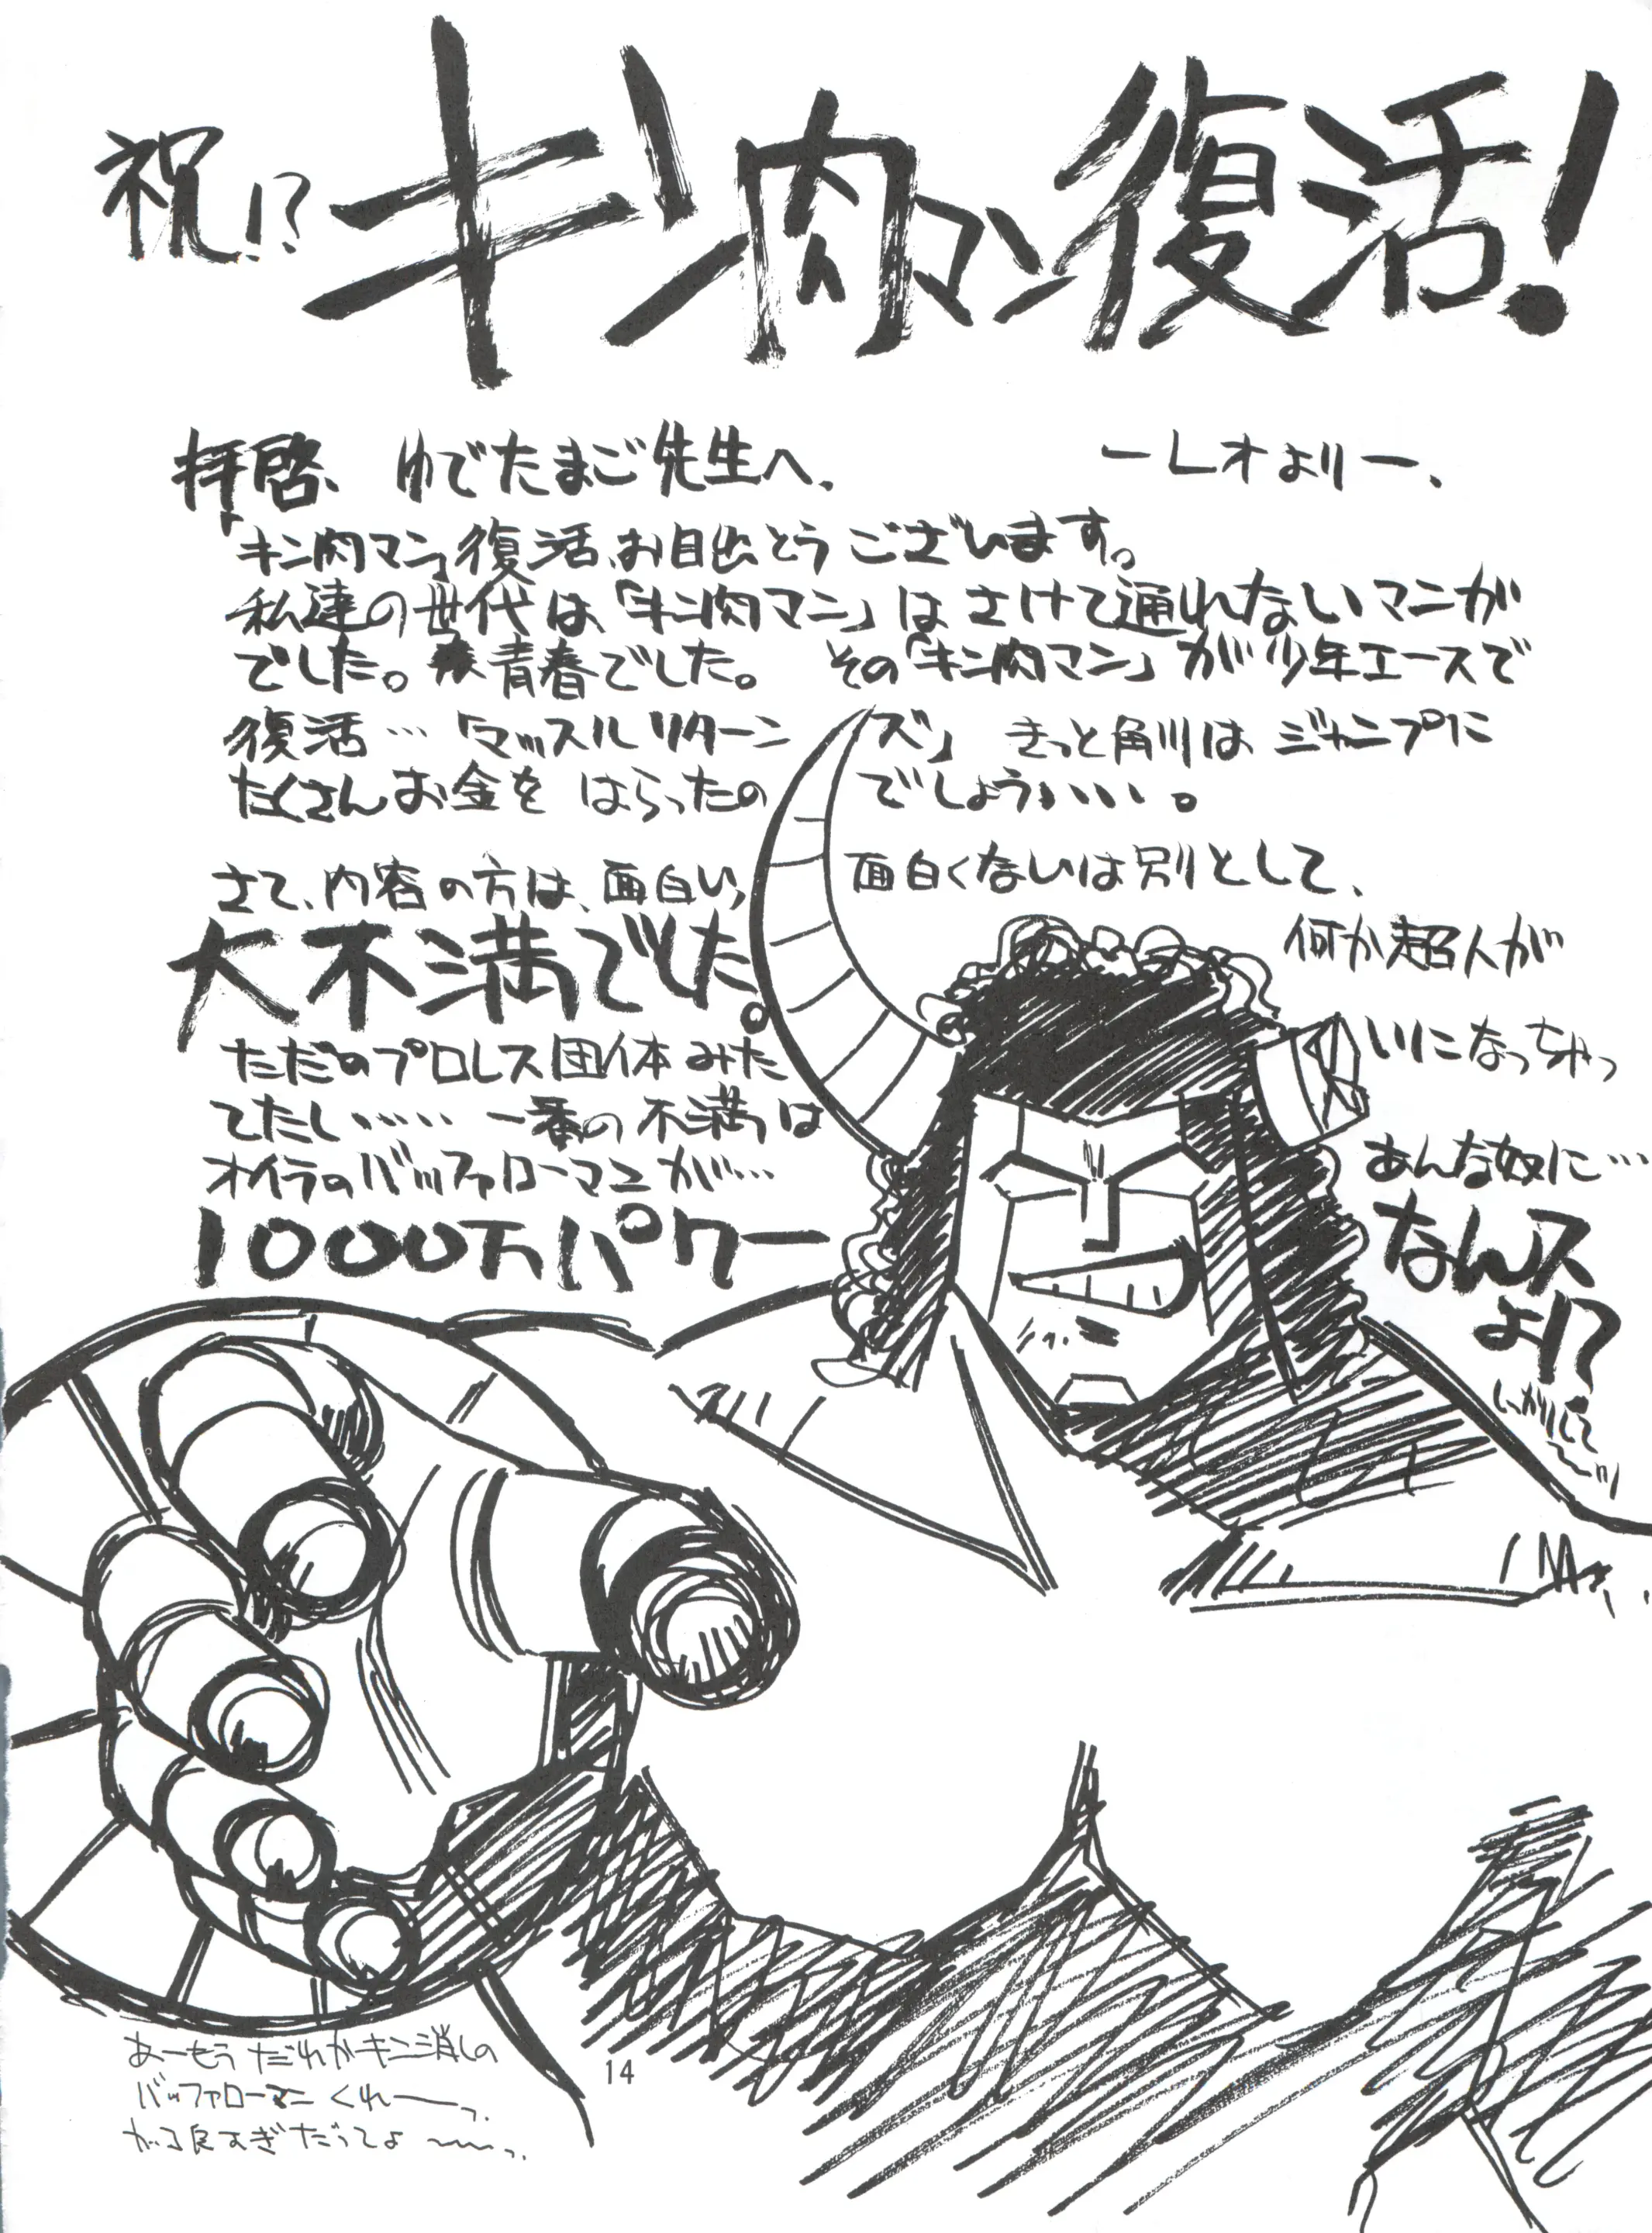 祝!?キン肉マン復活!
拝啓、ゆでたまご先生へ、 ーレオよりー、
「キン肉マン」復活、お目出とうございます。
私達の世代は、「キン肉マン」はさけて通れないマンガ
でした。青春でした。その「キン肉マン」が少年エースで
復活…「マッスルリターンズ」きっと角川はジャンプに
たくさんお金をはらったのでしょう、、、、。
さて、内容の方は、面白い、面白くないは別として、
大不満でした。
何か超人が
ただのプロレス団体みた
いになっちゃっ
てたし、…… 一番の不満は
オイラのバッファローマンが…
あんな奴に…
1000万パワー
なんスよ!?
しっかりして〜ッ
あーもうだれかキン消しの
バッファローマンくれーっ.
ガラ良すぎだってよ〜〜っ.
14